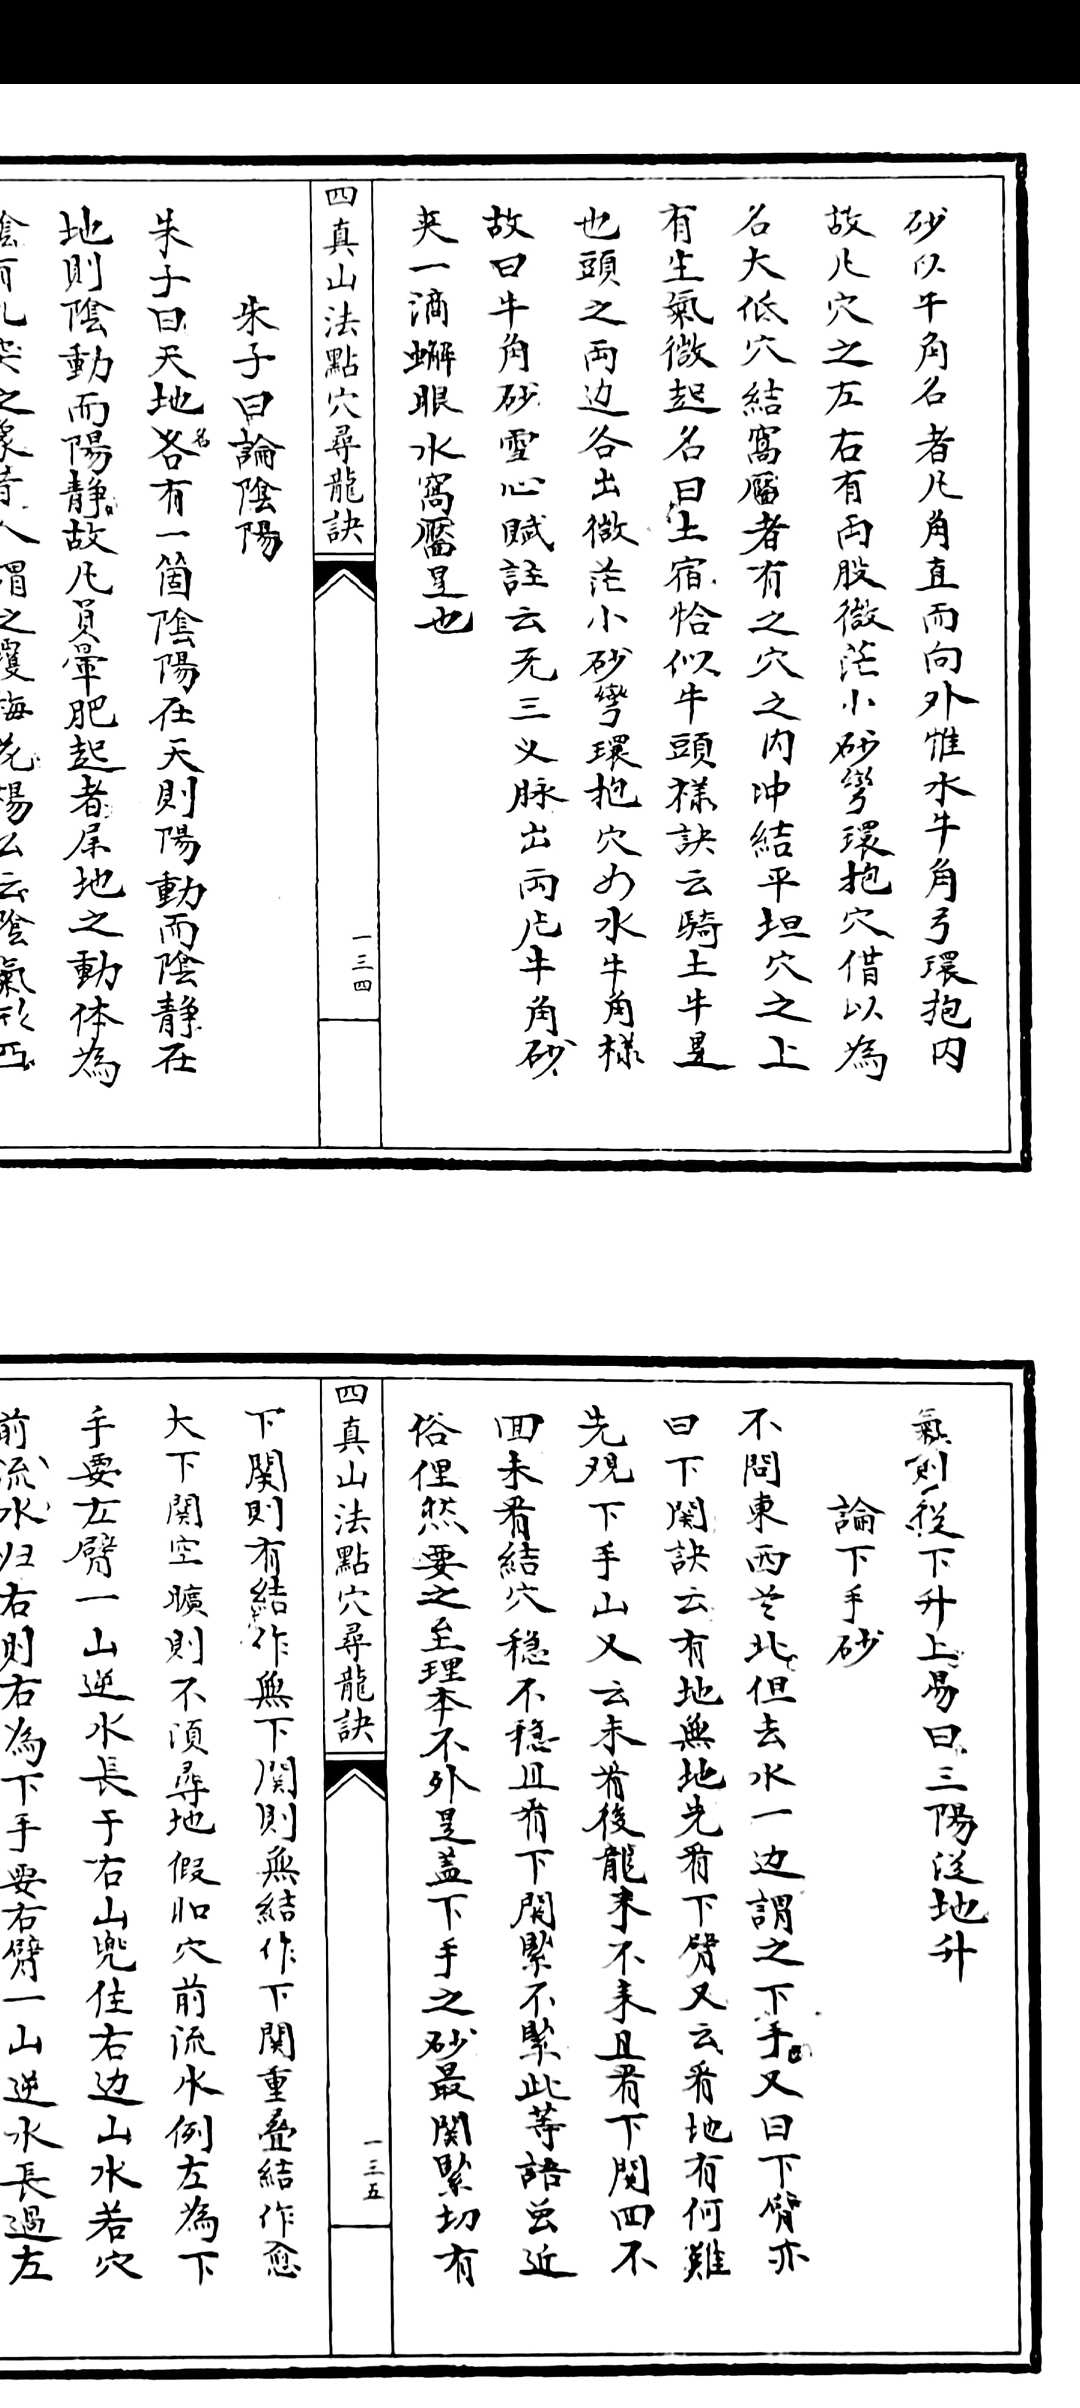 砂以牛角名者凡角直而向外惟水牛角弓環抱内
故凡穴之左右有両股微茫小砂彎環抱穴借以為
名大低穴結窩靨者有之穴之内冲結平坦穴之上
有生氣微起名曰土宿恰似牛頭様訣云騎土牛是
也頭之両边各出微茫小砂彎環抱穴如水牛角樣
故曰牛角砂雪心賦註云无三义脉出両片牛角砂
夹一滴蠏眼水窩靨是也
四真山法點穴尋龍訣
一三四
朱子曰論陰陽
朱子曰天地各名有一箇陰陽在天則陽動而陰静在
地則陰動而陽静故凡員暈肥起者屬地之動体為
陰有凡突之象昔人謂之覆梅花楊公云陰氣形
氣則從下升上易曰三陽從地升
論下手砂
不問東西北但去水一边謂之下手又曰下臂亦
曰下関訣云有地無地先看下臂又云看地有何難
先观下手山又云未看後龍来不来且看下関四不
囬未看結穴穏不穏且看下関緊不緊此等語虽近
俗俚然要之至理本不外是盖下手之砂最関緊切有
四真山法點穴尋龍訣
一三五
下関則有結作無下関則無結作下関重叠結作愈
大下関空曠則不須尋地假如穴前流水倒左為下
手要左臂一山逆水長于右山兜住右边山水若穴
前流水归右則右為下手要右臂一山逆水長過左